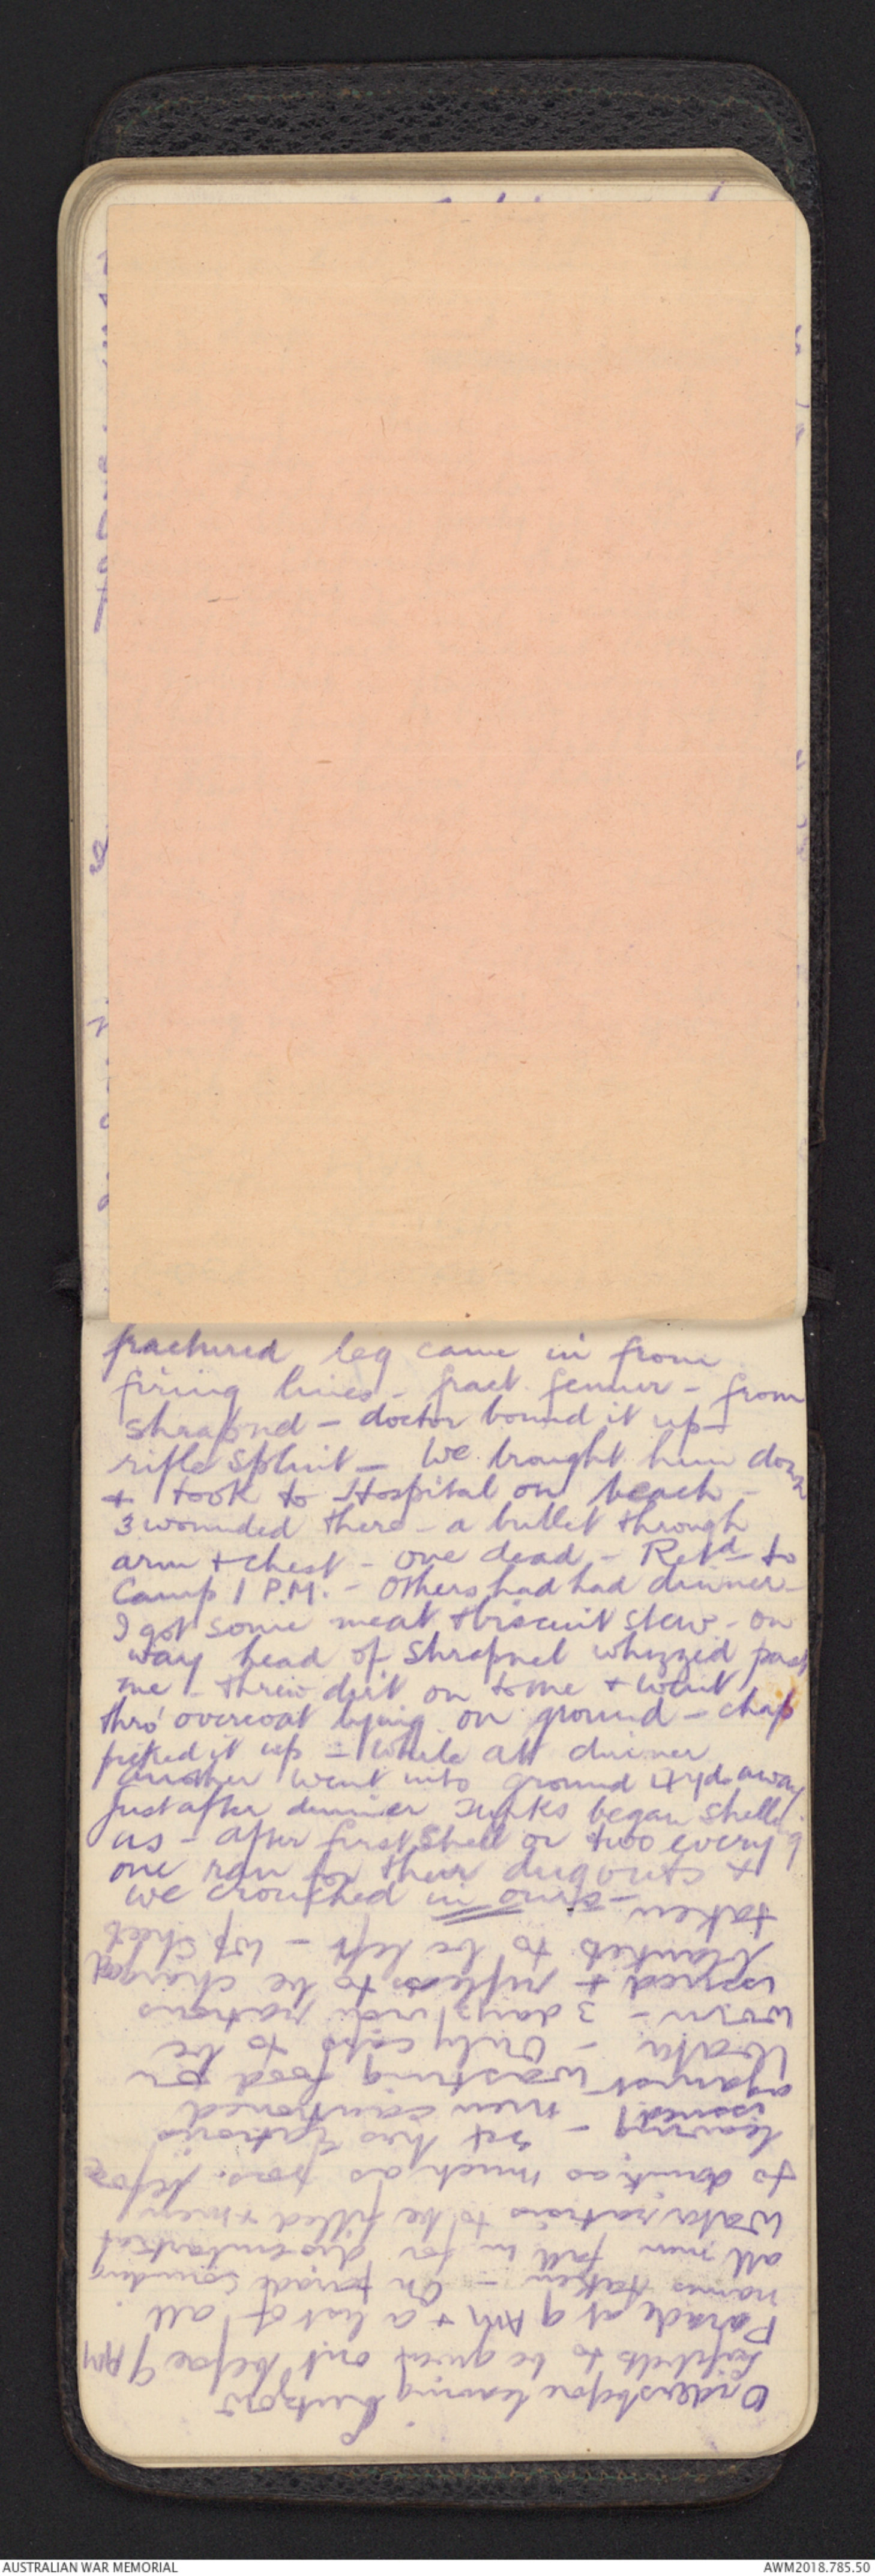 fractured leg came in from
firing lines - fract. femur - from
shrapnel - doctor bound it up -
rifle splint - We brought him down
+ took to Hospital on beach -
3 wounded there - a bullet through
arm + chest - one dead - Retd to
Camp 1 P.M. - Others had had dinner -
I got some meat + biscuit stew - on
way head of Shrapnel whizzed past
me - threw dirt on to me + went
thro' overcoat lying on ground - chap
picked it up - While at dinner
another went into ground yds away
Just after dinner Turks began shelling
us - after first shell or two every
one ran for their dugouts +
we crouched in ours -
Orders before leaving transport
to be given out before 9 AM
Parade at 9 AM + a list of all
names taken - On parade sounding
all men fall in for disembarkat
Water to be filled + men
to drink as much as poss. before
leaving - Set iron rations
issued - men cautioned
against wasting food or
Water - Only caps to be
worn - 3 days rations
issued + rifles to be charged
blankets to be left - Wp sheet
taken
AUSTRALIAN WAR MEMORIAL
AWM2018.785.50